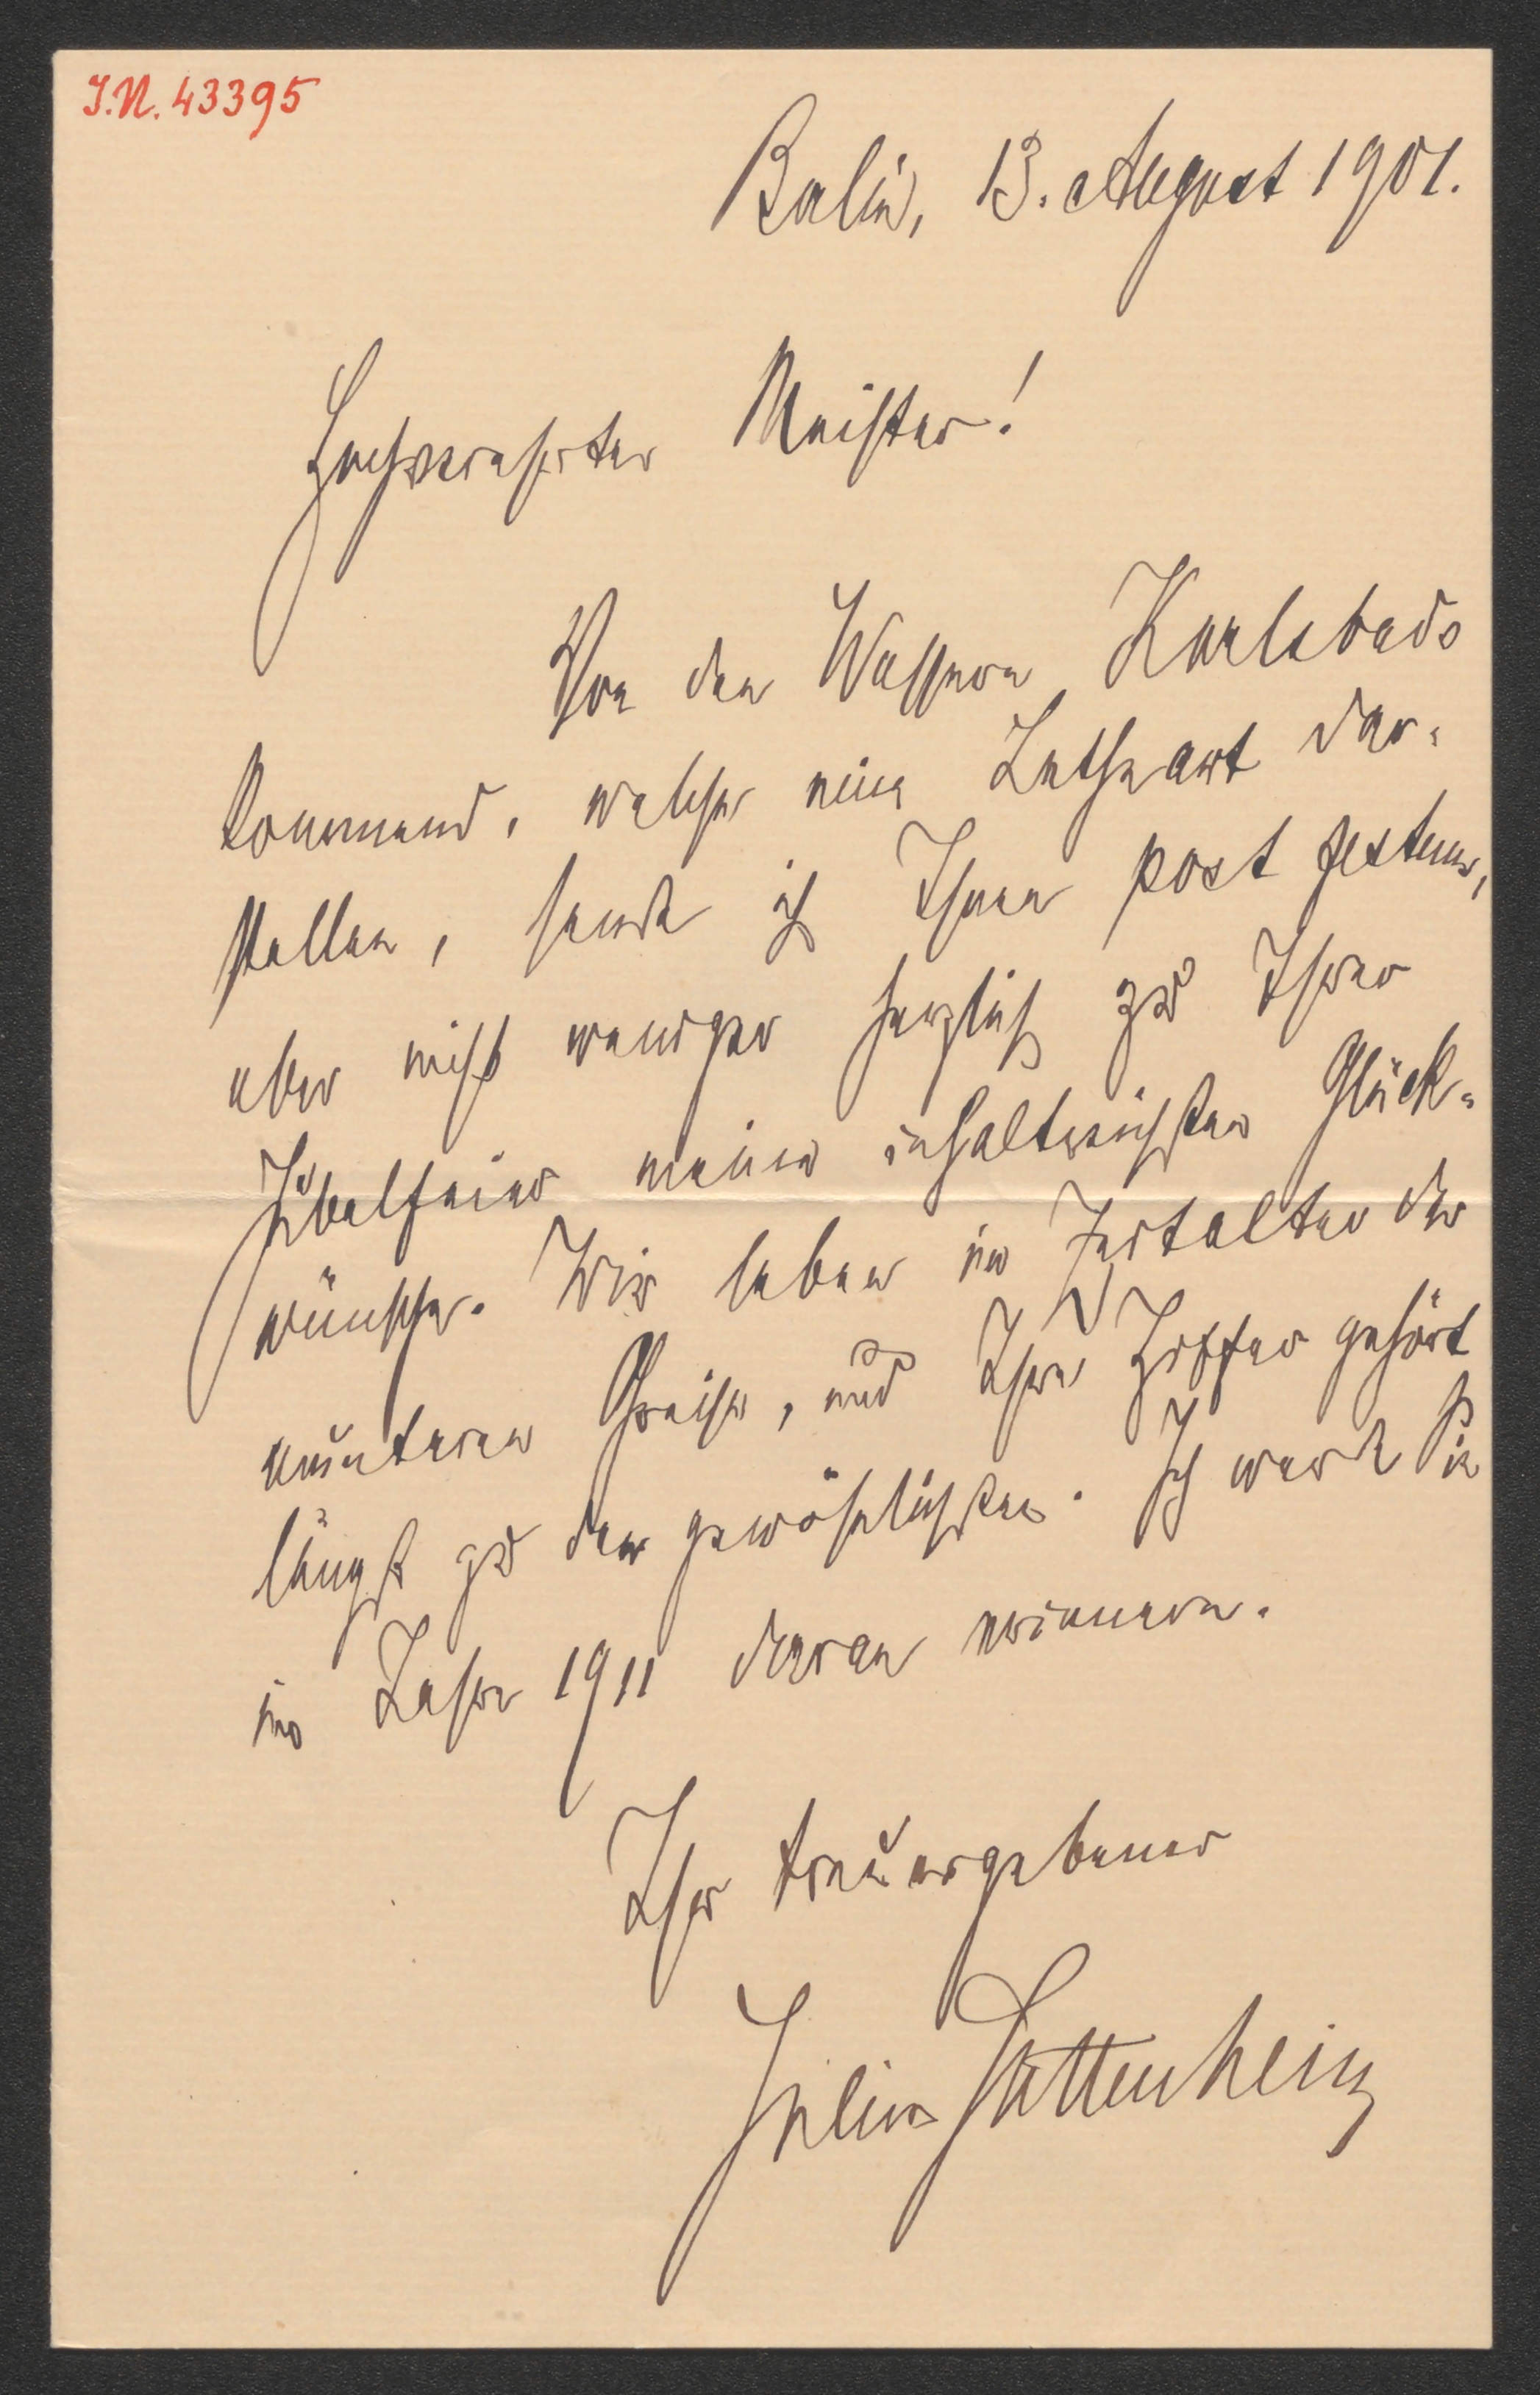 I.N. 43395
Berlin, 13. August 1901.
Hochverehrter Meister!
Von den Wassern Karlsbads
kommend, welche eine Lethe art dar-
stellen, sende ich Ihnen post festum,
aber nicht weniger herzlich zu Ihrer
Jubelfeier meine inhaltreichsten Glück-
wünsche. Wir leben im Zeitalter der
munteren Greise, und Ihre Ziffer gehört
längst zu den gewöhnlichsten. Ich werde Sie
im Jahre 1911 daran erinnern.
Ihr treuergebener
Julius Stettenheim